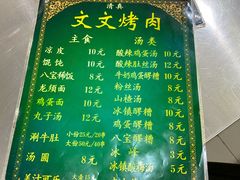 清真
文文烤肉
主食
凉皮 10元
馄饨 10元
八宝稀饭 8元
龙须面 12元
鸡蛋面 10元
丸子汤 12元
涮牛肚 小份25元/20串
大份50元/40串
汤圆 8元
汤类
酸辣鸡蛋汤 10元
酸辣肚丝汤 12元
牛奶鸡蛋醪糟 10元
粉丝汤
山楂汤
冰镇醪糟
鸡蛋醪糟
八宝醪糟
冰 3元
冰镇酸梅汤 5元